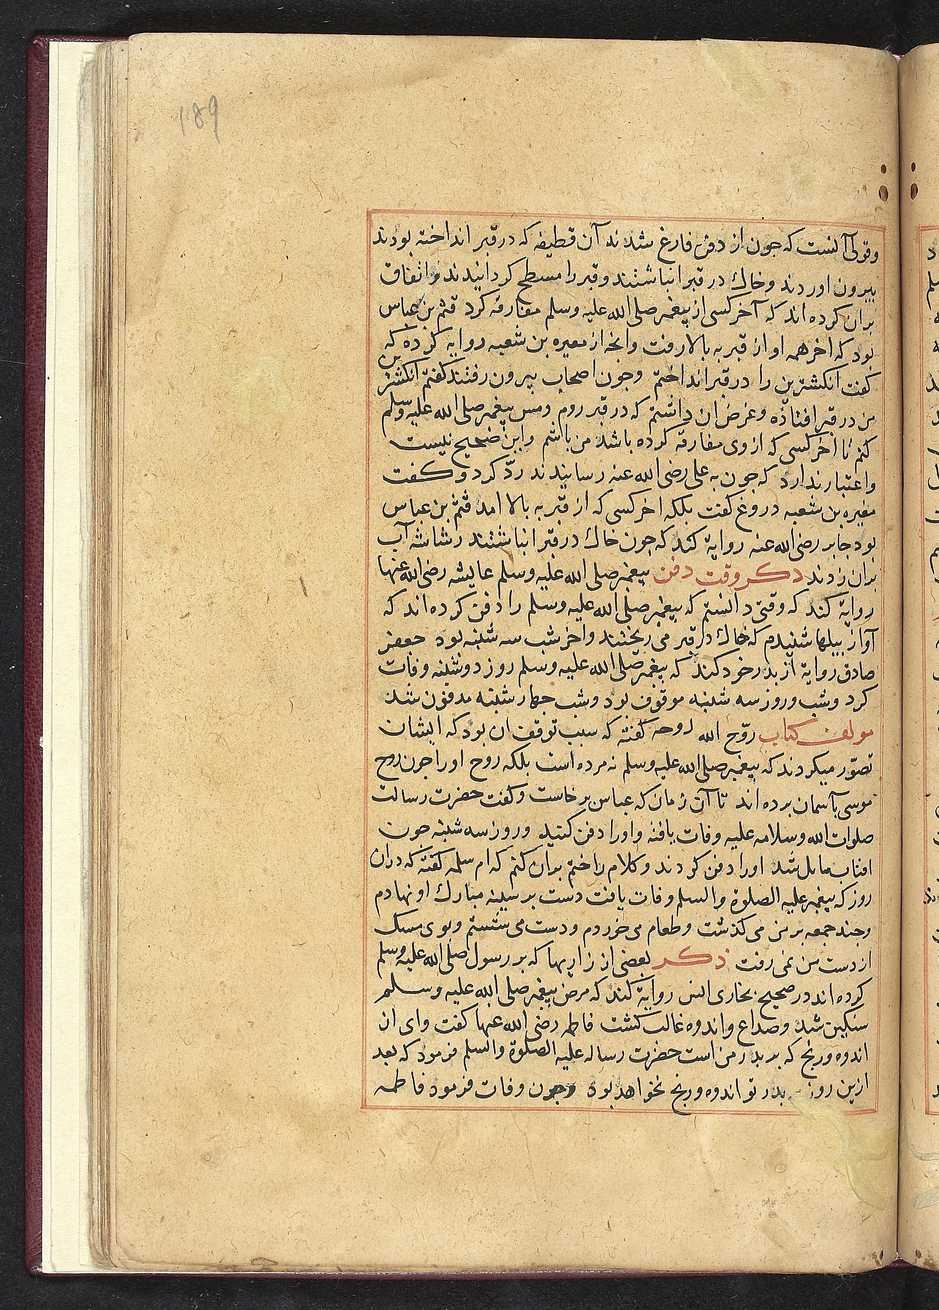 ۱۸۹
وقولی آنست که جون از دفن فارغ شدند آن قطیفه که در قبر انداخته بودند
بیرون اوردند وخاك در قبر انباشتند وقبر را مسطح کردانیدند واتفاق
بران کرده اند که آخر کسی از پیغمبر صلی الله علیه وسلم مفارقه کرد قثم بن عباس
بود که اخر همه او از قبر به بالا رفت وانچه از مغیره بن شعبه روایة کرده که
کفت انکشترین را در قبر انداختم وجون اصحاب بیرون رفتند کفتم انکشترین
من در قبر افتاده وغرض ان داشتم که در قبر روم ومس پیغمبر صلی الله علیه وسلم
کنم تا اخر کسی که از وی مفارقه کرده باشد من باشم واین صحیح نیست
واعتبار ندارد که جون به علی رضی الله عنه رسانیدند ردّ کرد وکفت
مغیره بن شعبه دروغ کفت بلکه اخر کسی که از قبر به بالا امد قثم بن عباس
بود جابر رضی الله عنه روایة کند که جون خاك در قبر انباشتند رشاشه آب
بران زدند ذکر وقت دفن پیغمبر صلی الله علیه وسلم عایشه رضی الله عنها
روایة کند که وقتی دانستم که پیغمبر صلی الله علیه وسلم را دفن کرده اند که
آواز بیلها شنیدم که خاك در قبر می ریختند واخر شب سه شنبه بود جعفر
صادق روایة از بدر خود کند که پیغمبر صلی الله علیه وسلم روز دوشنبه وفات
کرد وشب وروز سه شنبه موقوف بود وشب جهار شنبه مدفون شد
مولف کتاب روّح الله روحه کفته که سبب توقف ان بود که ایشان
تصوّر میکردند که پیغمبر صلی الله علیه وسلم نه مرده است بلکه روح او را جون روح
موسی بآسمان برده اند تا آن زمان که عباس برخاست وکفت حضرت رسالت
صلوات الله وسلامه علیه وفات یافته واورا دفن کنید وروز سه شنبه جون
افتاب مایل شد اورا دفن کردند وکلام را ختم بران کنم که ام سلمه کفته که دران
روز که پیغمبر علیه الصلوة والسلم وفات یافت دست بر سینه مبارك او نهادم
وجند جمعه بر من می کذشت وطعام می خوردم ودست می شستم وبوی مسك
از دست من نمی رفت ذکر بعضی از زاریها که بر رسول صلی الله علیه وسلم
کرده اند در صحیح بخاری انس روایة کند که مرض پیغمبر صلی الله علیه وسلم
سنکین شد وصداع واندوه غالب کشت فاطمه رضی الله عنها کفت وای ان
اندوه ورنج که بر بدر من است حضرت رساله علیه الصلوة والسلم فرمود که بعد
ازین روز بر بدر تو اندوه ورنج نخواهد بود وجون وفات فرمود فاطمه